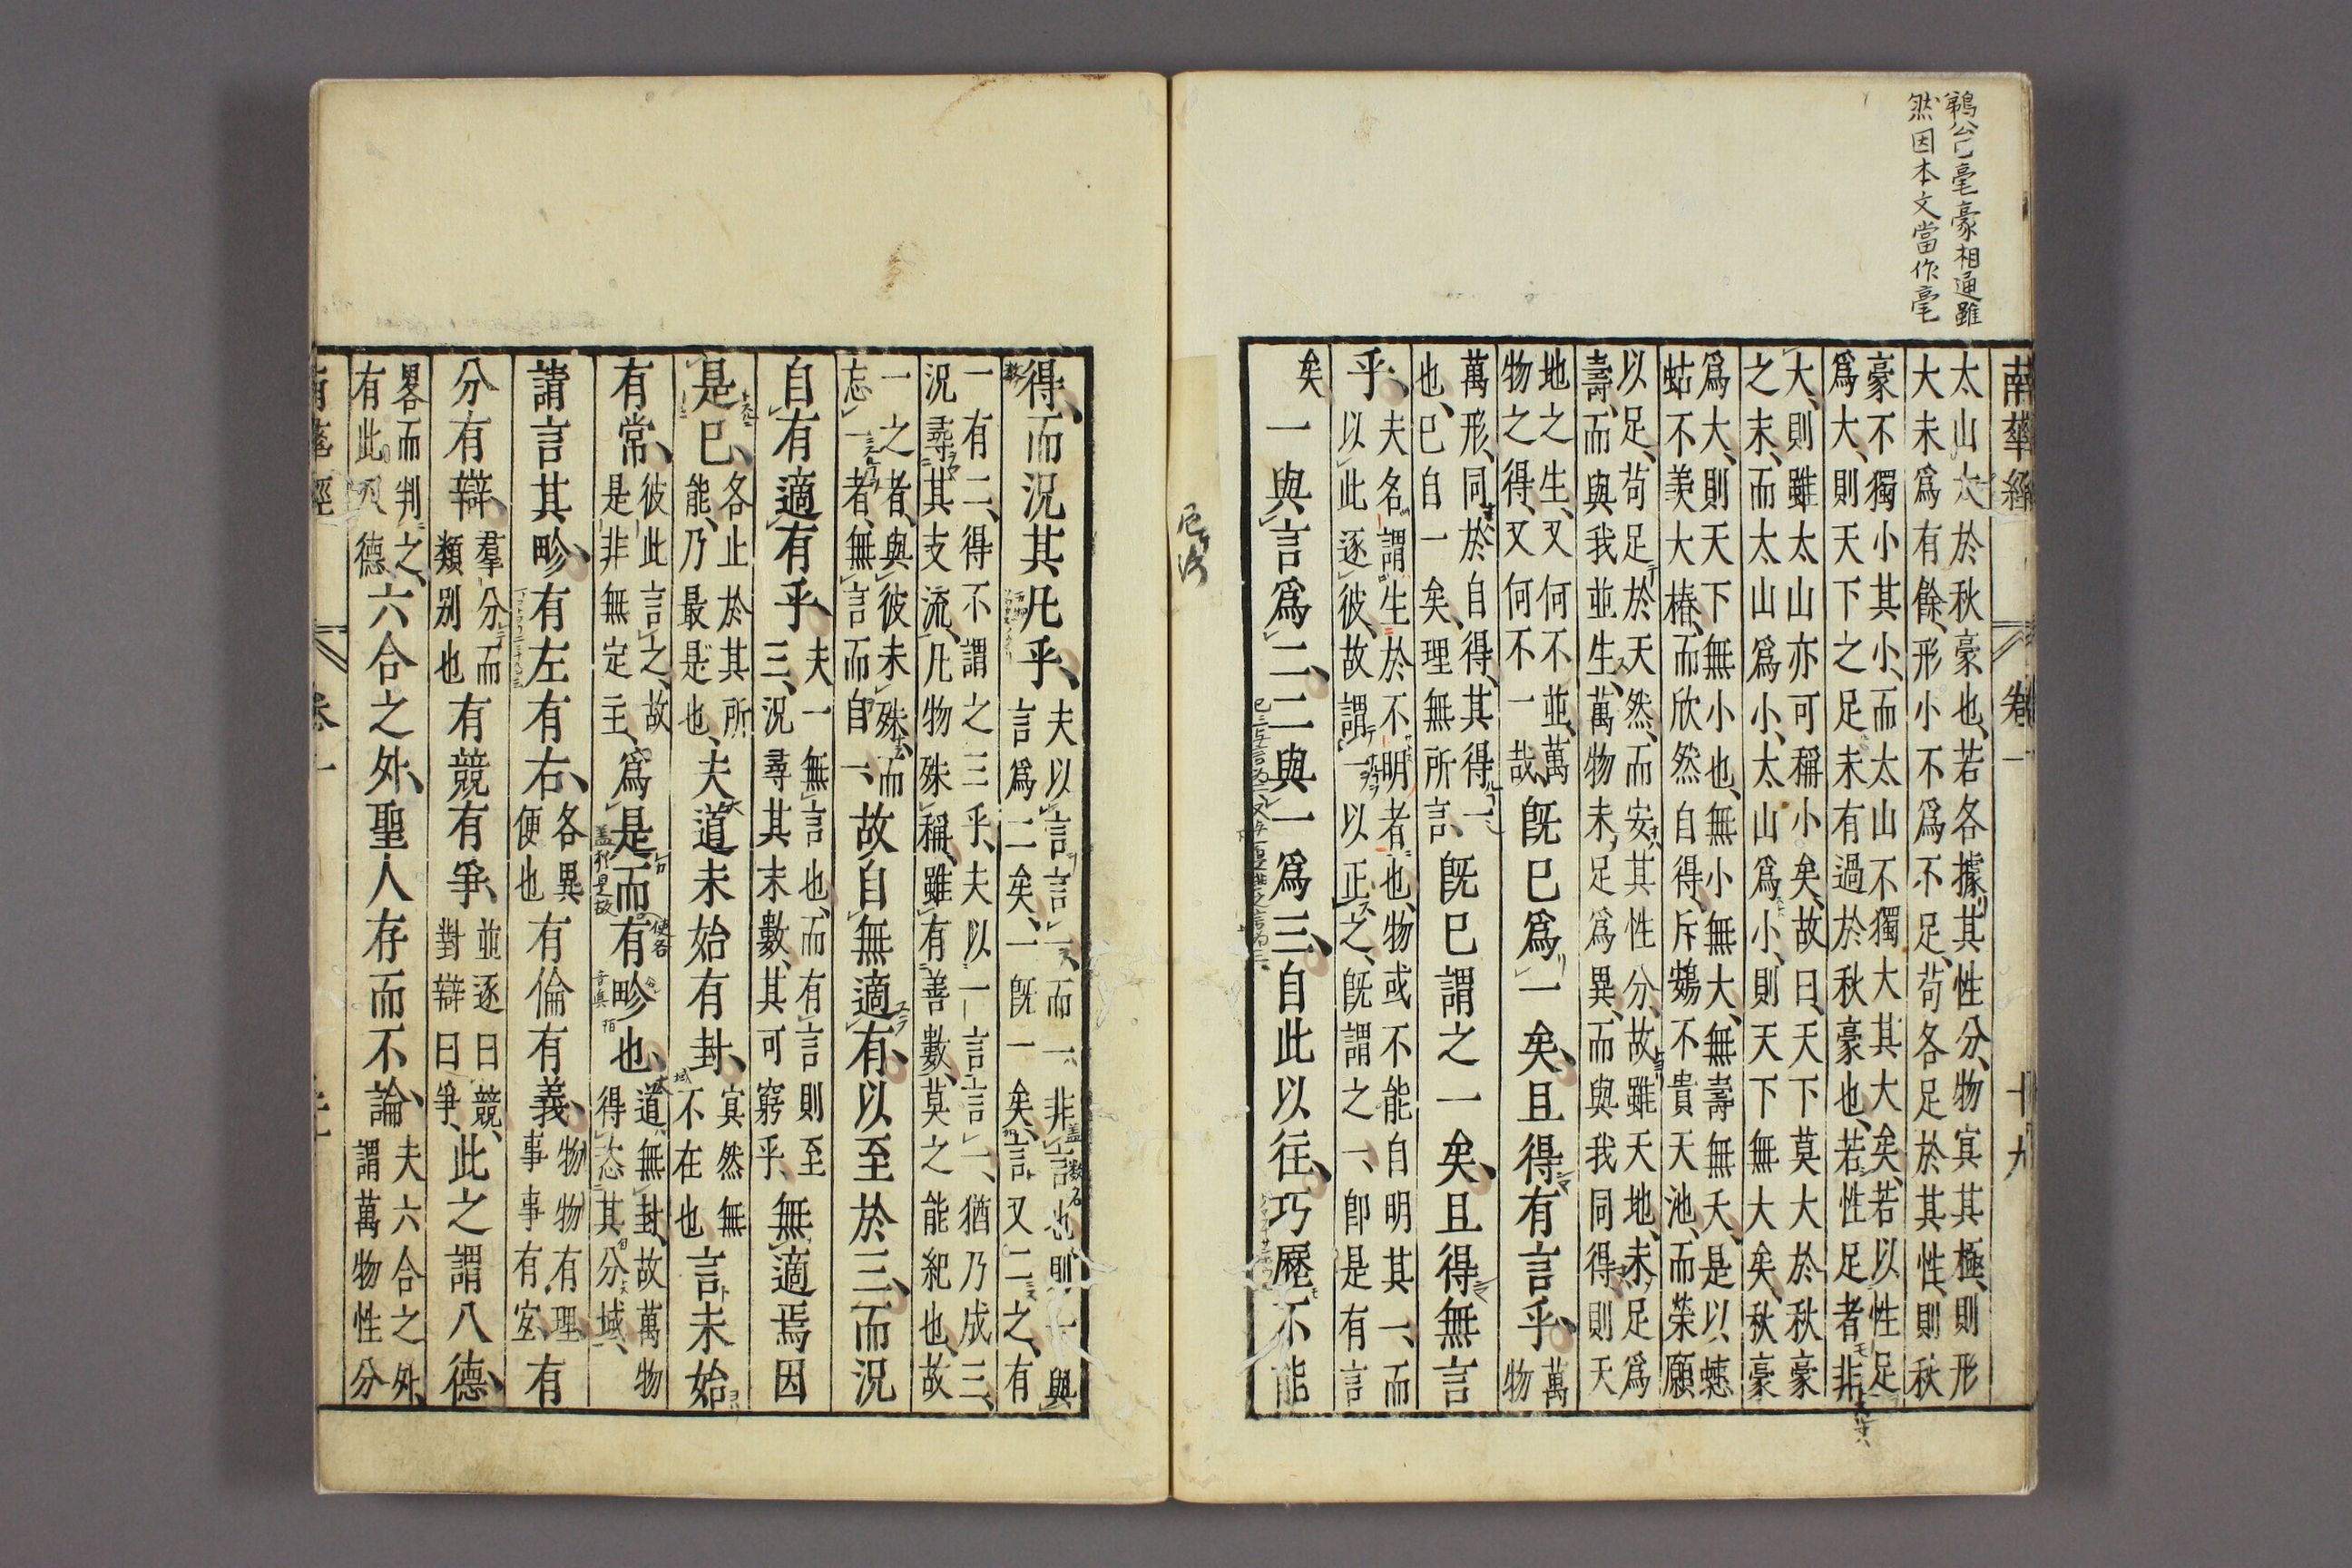 鵜公曰毫豪相通雖
然因本文當作毫
南華經 卷一 十九
太山大於秋豪也、若各據其性分、物冥其極、則形
大未爲有餘、形小不爲不足、苟各足於其性、則秋
豪不獨小其小、而太山不獨大其大矣、若以性足
爲大、則天下之足未有過於秋豪也、若性足者非
大、則雖太山亦可稱小矣、故曰、天下莫大於秋豪
之末、而太山爲小、太山爲小、則天下無大矣、秋豪
爲大、則天下無小也、無小無大、無壽無夭、是以蟪
蛄不羨大椿、而欣然自得、斥鷃不貴天池、而榮願
以足、苟足於天然、而安其性分、故雖天地、未足爲
壽、而與我並生、萬物未足爲異、而與我同得、則天
地之生、又何不並、萬
物之得、又何不一哉、
既已爲一矣、且得有言乎、
萬
物
萬形、同於自得、其得一
也、已自一矣、理無所言、
既已謂之一矣、且得無言
乎、
夫名謂生於不明者也、物或不能自明其一、而
以此逐彼、故謂一以正之、既謂之一、即是有言
矣
一與言爲二、二與一爲三、自此以往、巧歷不能
得、而況其凡乎、
夫以言言一、而一非言也、則一與
言爲二矣、一既一矣、言又二之、有
一有二、得不謂之三乎、夫以一言言一、猶乃成三、
況尋其支流、凡物殊稱、雖有善數、莫之能紀也、故
一之者、與彼未殊、而
忘一者、無言而自一、
故自無適有、以至於三、而況
自有適有乎、
夫一無言也、而有言則至
三、況尋其末數、其可窮乎、
無適焉因
是已、
各止於其所
能、乃最是也、
夫道未始有封、
冥然無
不在也
言未始
有常、
彼此言之、故
是非無定主、
爲是而有畛也、
道無封、故萬物
得恣其分域、
請言其畛、有左有右、
各異
便也
有倫有義、
物物有理、
事事有宜、
有
分有辯、
羣分而
類別也
有競有爭、
並逐曰競、
對辯曰爭、
此之謂八德、
畧而判之、
有此八德
六合之外、聖人存而不論、
夫六合之外、
謂萬物性分